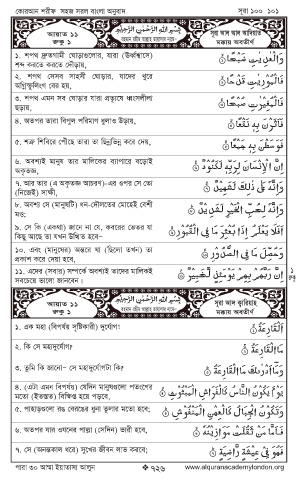 কোরআন শরীফ সহজ সরল বাংলা অনুবাদ
সূরা ১০০ ১০১
আয়াত ১১
রুকু ১
بِسْمِ اللّٰهِ الرَّحْمٰنِ الرَّحِيْمِ
রহমান রহীম আল্লাহ তায়ালার নামে
সূরা আল আদিয়াত
মক্কায় অবতীর্ণ
১. শপথ দ্রুতগামী ঘোড়াগুলোর, যারা (উর্ধ্বশ্বাসে)
শব্দ করতে করতে দৌড়ায়,
وَالْعٰدِيٰتِ ضَبْحًا
২. শপথ সেসব সাহসী ঘোড়ার, যাদের খুরে
অগ্নিস্ফুলিংগ বের হয়,
فَالْمُوْرِيٰتِ قَدْحًا
৩. শপথ এমন সব ঘোড়ার যারা প্রত্যুষে ধ্বংসলীলা
ছড়ায়,
فَالْمُغِيْرٰتِ صُبْحًا
৪. অতপর তারা বিপুল পরিমাণ ধুলাও উড়ায়,
فَاَثَرْنَ بِهٖ نَقْعًا
৫. শত্রু শিবিরে পৌঁছে তারা তা ছিন্নভিন্ন করে দেয়,
فَوَسَطْنَ بِهٖ جَمْعًا
৬. অবশ্যই মানুষ তার মালিকের ব্যাপারে বড়োই
অকৃতজ্ঞ,
اِنَّ الْاِنْسَانَ لِرَبِّهٖ لَكَنُوْدٌ
৭. আর তার (এ অকৃতজ্ঞ আচরণ)-এর ওপর সে তো
(নিজেই) সাক্ষী,
وَاِنَّهٗ عَلٰى ذٰلِكَ لَشَهِيْدٌ
৮. অবশ্য সে (মানুষটি) ধন-দৌলতের মোহেই বেশী
মত্ত;
وَاِنَّهٗ لِحُبِّ الْخَيْرِ لَشَدِيْدٌ
৯. সে কি (একথা) জানে না যে, কবরের ভেতর যা
কিছু আছে তা যখন উত্থিত হবে-
اَفَلَا يَعْلَمُ اِذَا بُعْثِرَ مَا فِى الْقُبُوْرِ
১০. এবং (মানুষের) অন্তরে যা (ছিলো তখন) তা
প্রকাশ করে দেয়া হবে,
وَحُصِّلَ مَا فِى الصُّدُوْرِ
১১. এদের (সবার) সম্পর্কে অবশ্যই তাদের মালিকই
সবচেয়ে ভালো জানবেন।
اِنَّ رَبَّهُمْ بِهِمْ يَوْمَئِذٍ لَّخَبِيْرٌ
আয়াত ১১
রুকু ১
بِسْمِ اللّٰهِ الرَّحْمٰنِ الرَّحِيْمِ
রহমান রহীম আল্লাহ তায়ালার নামে
সূরা আল ক্বারিয়াহ
মক্কায় অবতীর্ণ
১. এক মহা (বিপর্যয় সৃষ্টিকারী) দুর্যোগ!
اَلْقَارِعَةُ
২. কি সে মহাদুর্যোগ?
مَا الْقَارِعَةُ
৩. তুমি কি জানো- সে মহাদুর্যোগটা কি?
وَمَا اَدْرٰىكَ مَا الْقَارِعَةُ
৪. (এটা এমন বিপর্যয়) যেদিন মানুষগুলো পতংগের
মতো (ইতস্তত) বিক্ষিপ্ত হয়ে পড়বে,
يَوْمَ يَكُوْنُ النَّاسُ كَالْفَرَاشِ الْمَبْثُوْثِ
৫. পাহাড়গুলো রঙ বেরঙের ধুনা তুলার মতো হবে;
وَتَكُوْنُ الْجِبَالُ كَالْعِهْنِ الْمَنْفُوْشِ
৬. অতপর যার ওযনের পাল্লা (সেদিন) ভারী হবে,
فَاَمَّا مَنْ ثَقُلَتْ مَوَازِيْنُهٗ
৭. সে (অনন্তকাল ধরে) সুখের জীবন লাভ করবে;
فَهُوَ فِىْ عِيْشَةٍ رَّاضِيَةٍ
পারা ৩০ আম্মা ইয়াতাসা আলুন
৭২৬
www.alquranacademylondon.org